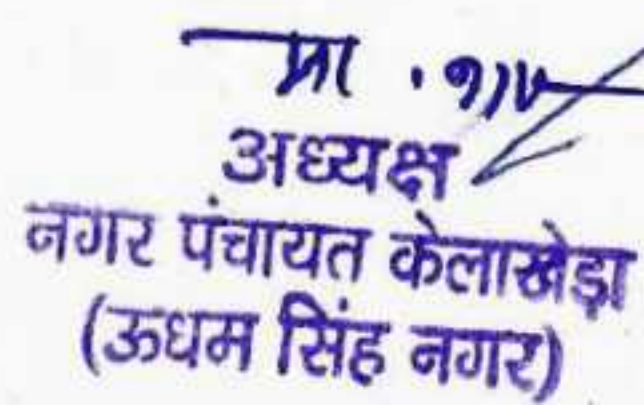 अध्यक्ष
नगर पंचायत केलाखेड़ा
(ऊधम सिंह नगर)